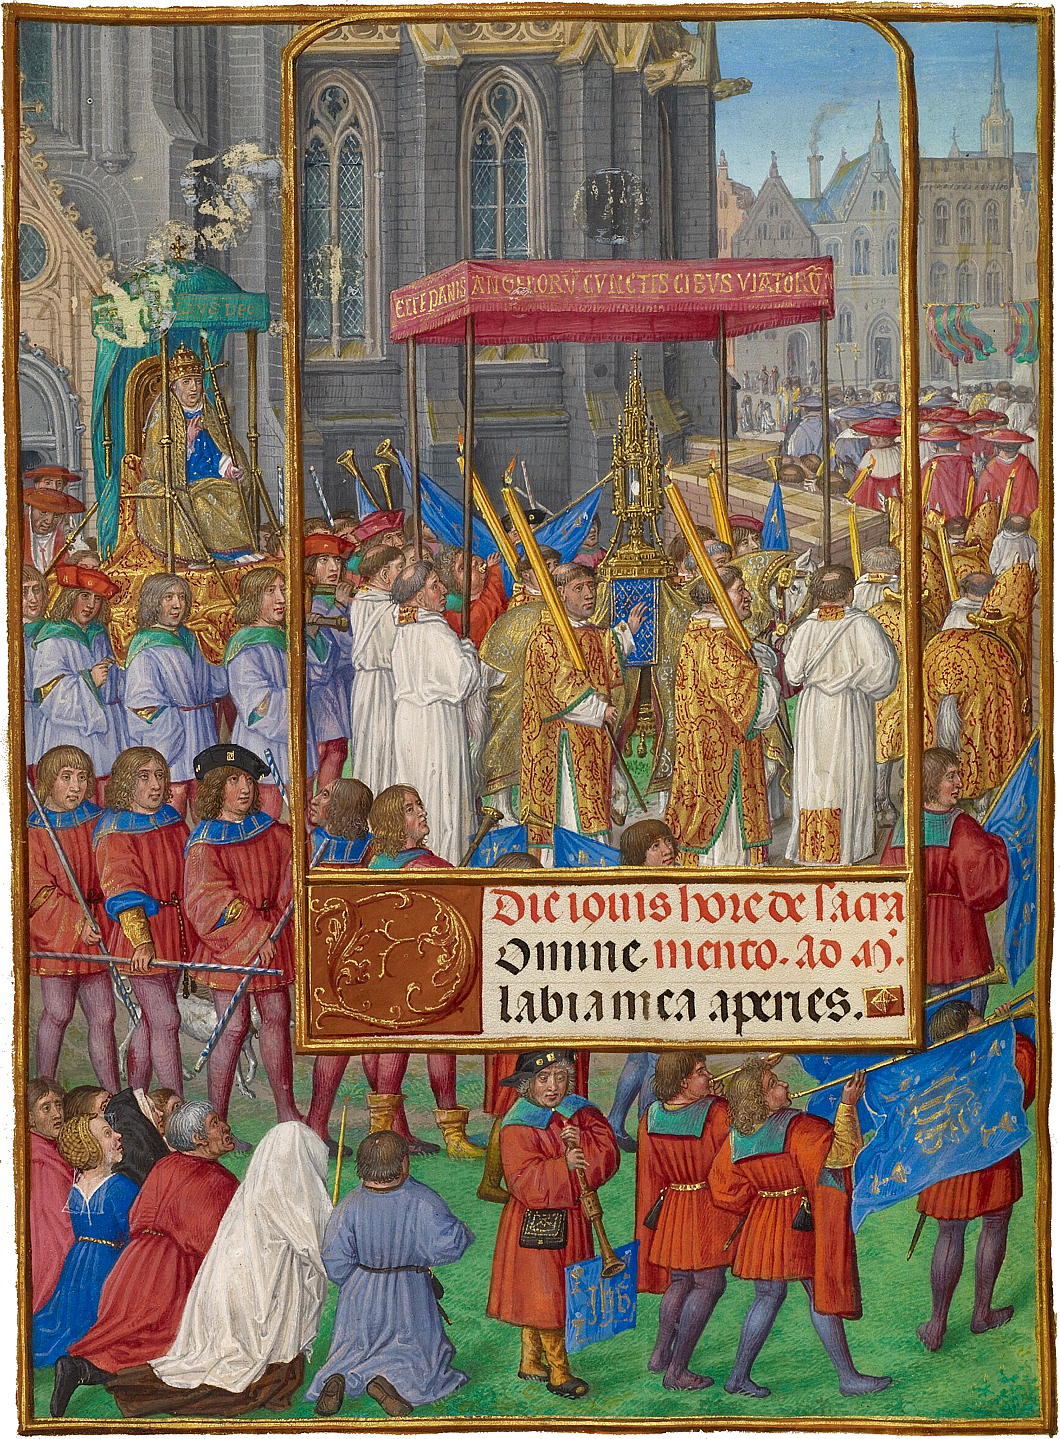 DEO
ECCE PANIS ANGELORV̄ CVNCTIS CIBVS VIATORV̄
Die iouis hore de sacra
Domine mento. ad m̄.
labia mea aperies.
ihs